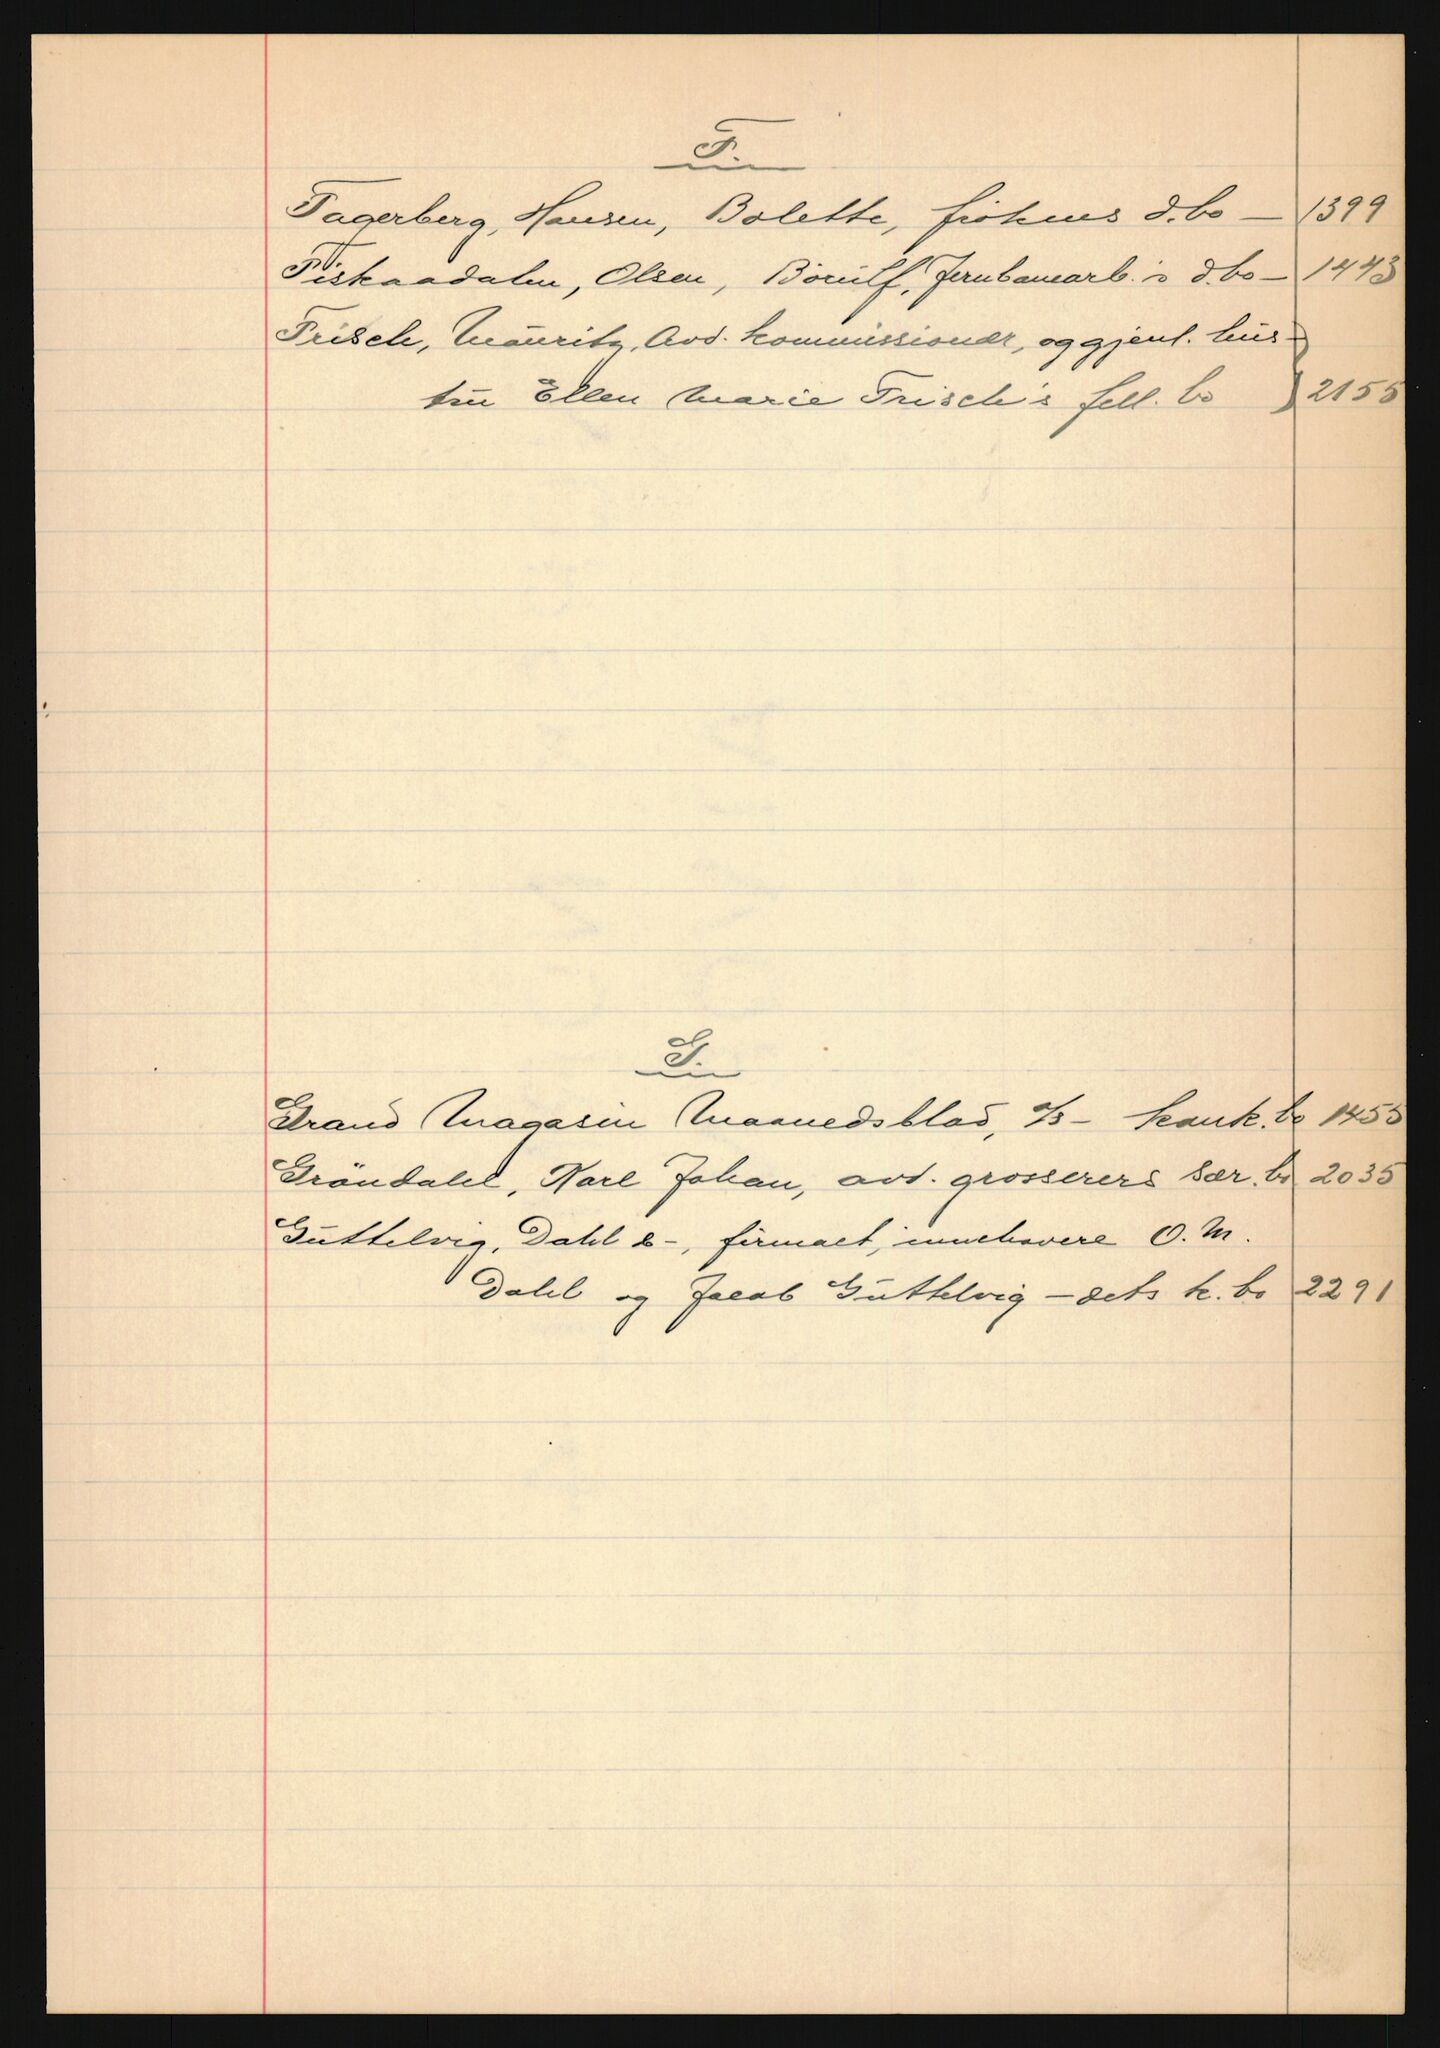 F.
Fagerberg, Hansen, Bolette, frøkens d.bo — 1399
Fiskaadalen, Olsen, Bönulf, Jernbanearb.'s d.bo — 1443
Frisch, Mauritz, Avd. kommissionær, og gjenl. hus-
tru Ellen Marie Frisch's fell. bo } 2155
G.
Grand Magasin Maanedsblad, A/S — konk. bo 1455
Gröndahl, Karl Johan, avd. grosserers sær. bo 2035
Guttelvig, Dahl & -, firmaet, innehavere O. M.
Dahl og Jacob Guttelvig — dets k. bo 2291